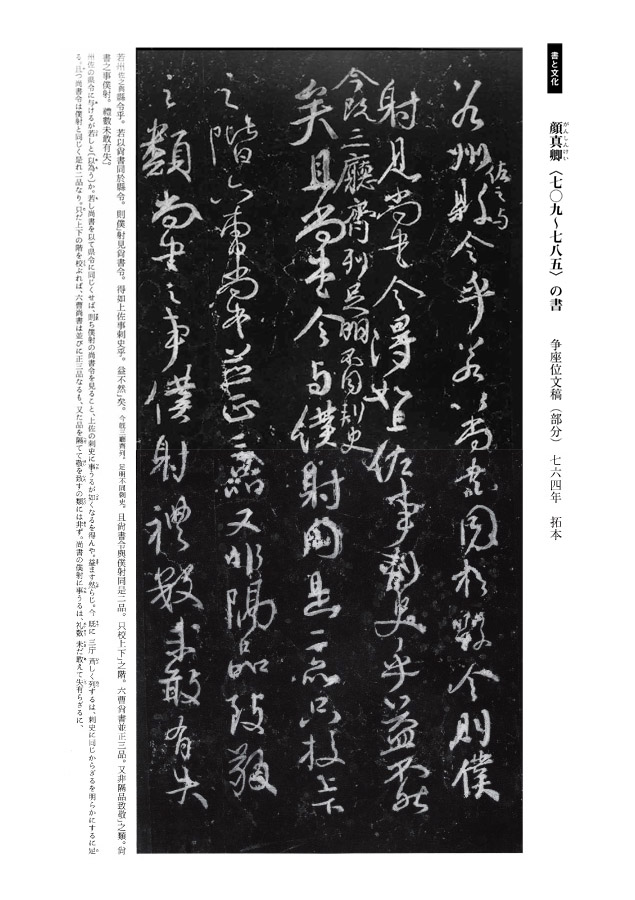 書と文化
顔真卿〈七〇九〜七八五〉の書
がんしんけい
争座位文稿（部分）　七六四年　拓本
若州佐之与縣令乎若以尚書同於縣令則僕
射見尚書令得如上佐事刺史乎益不然
今既三廳齊列足明不同刺史
矣且尚書令与僕射同是二品只校上下
之階六曹尚書並正三品又非隔品致敬
之類尚書之事僕射禮数未敢有失
若州佐之與縣令乎。若以尚書同於縣令。則僕射見尚書令。得如上佐事刺史乎。益不然矣。今既三廳齊列。足明不同刺史。且尚書令與僕射同是二品。只校上下之階。六曹尚書並正三品。又非隔品致敬之類。尚
書之事僕射。禮數未敢有失。
州佐の県令に与けるが若しと(以為う)か。若し尚書を以て県令に同じくせば、則ち僕射の尚書令を見ること、上佐の刺史に事うるが如くなるを得んや。益ます然らじ。今　既に　三庁　斉しく列するは、刺史に同じからざるを明らかにするに足
る。且つ尚書令は僕射と同じく是れ二品なり。只だ上下の階を校ぶれば、六曹尚書は並びに正三品なるも、又た品を隔てて敬を致すの類には非ず。尚書の僕射に事うるは、礼数　未だ敢えて失有らざるに、